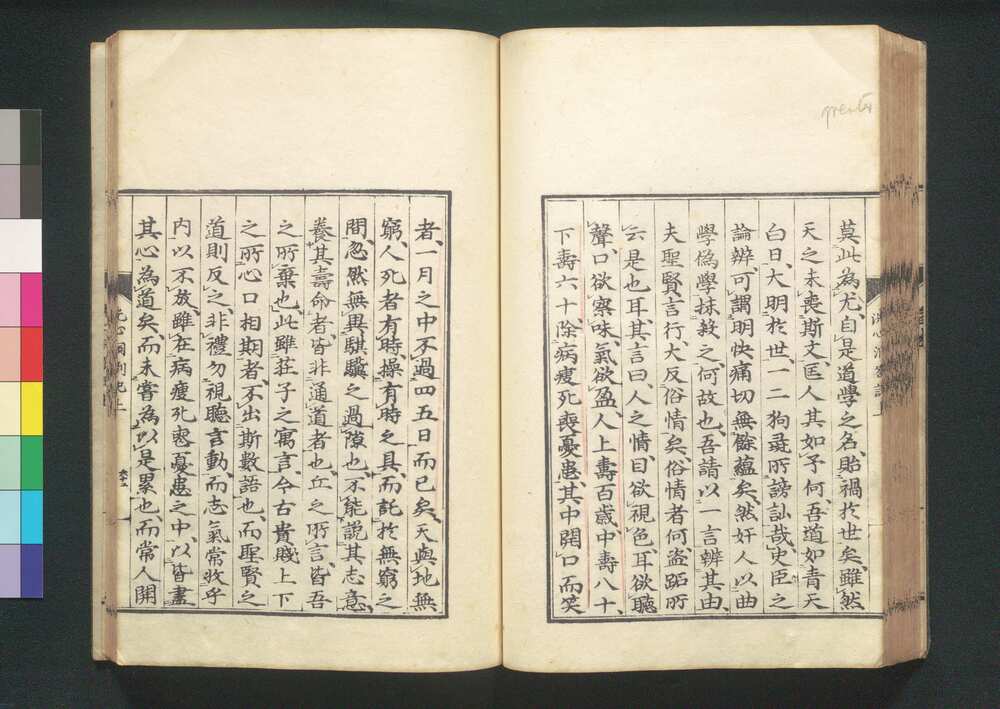 莫此為尤自是道學之名貽禍於世矣雖然
天之未喪斯文匡人其如予何吾道如青天
白日大明於世一二狗彘所謗訕哉史臣之
論辨可謂明快痛切無餘蘊矣然奸人以曲
學偽學抹殺之何故也吾請以一言辨其由
夫聖賢言行大反俗情矣俗情者何盜跖所
云是也耳其言曰人之情目欲視色耳欲聽
聲口欲察味氣欲盈人上壽百歲中壽八十
下壽六十除病瘦死喪憂患其中開口而笑
者一月之中不過四五日而已矣天與地無
窮人死者有時操有時之具而託於無窮之
間忽然無異騏驥之過隙也不能說其志意
養其壽命者皆非通道者也丘之所言皆吾
之所棄也此雖莊子之寓言今古貴賤上下
之所心口相期者不出斯數語也而聖賢之
道則反之非禮勿視聽言動而志氣常收乎
内以不放雖在病瘦死喪憂患之中以皆盡
其心為道矣而未嘗為以是累也而常人開